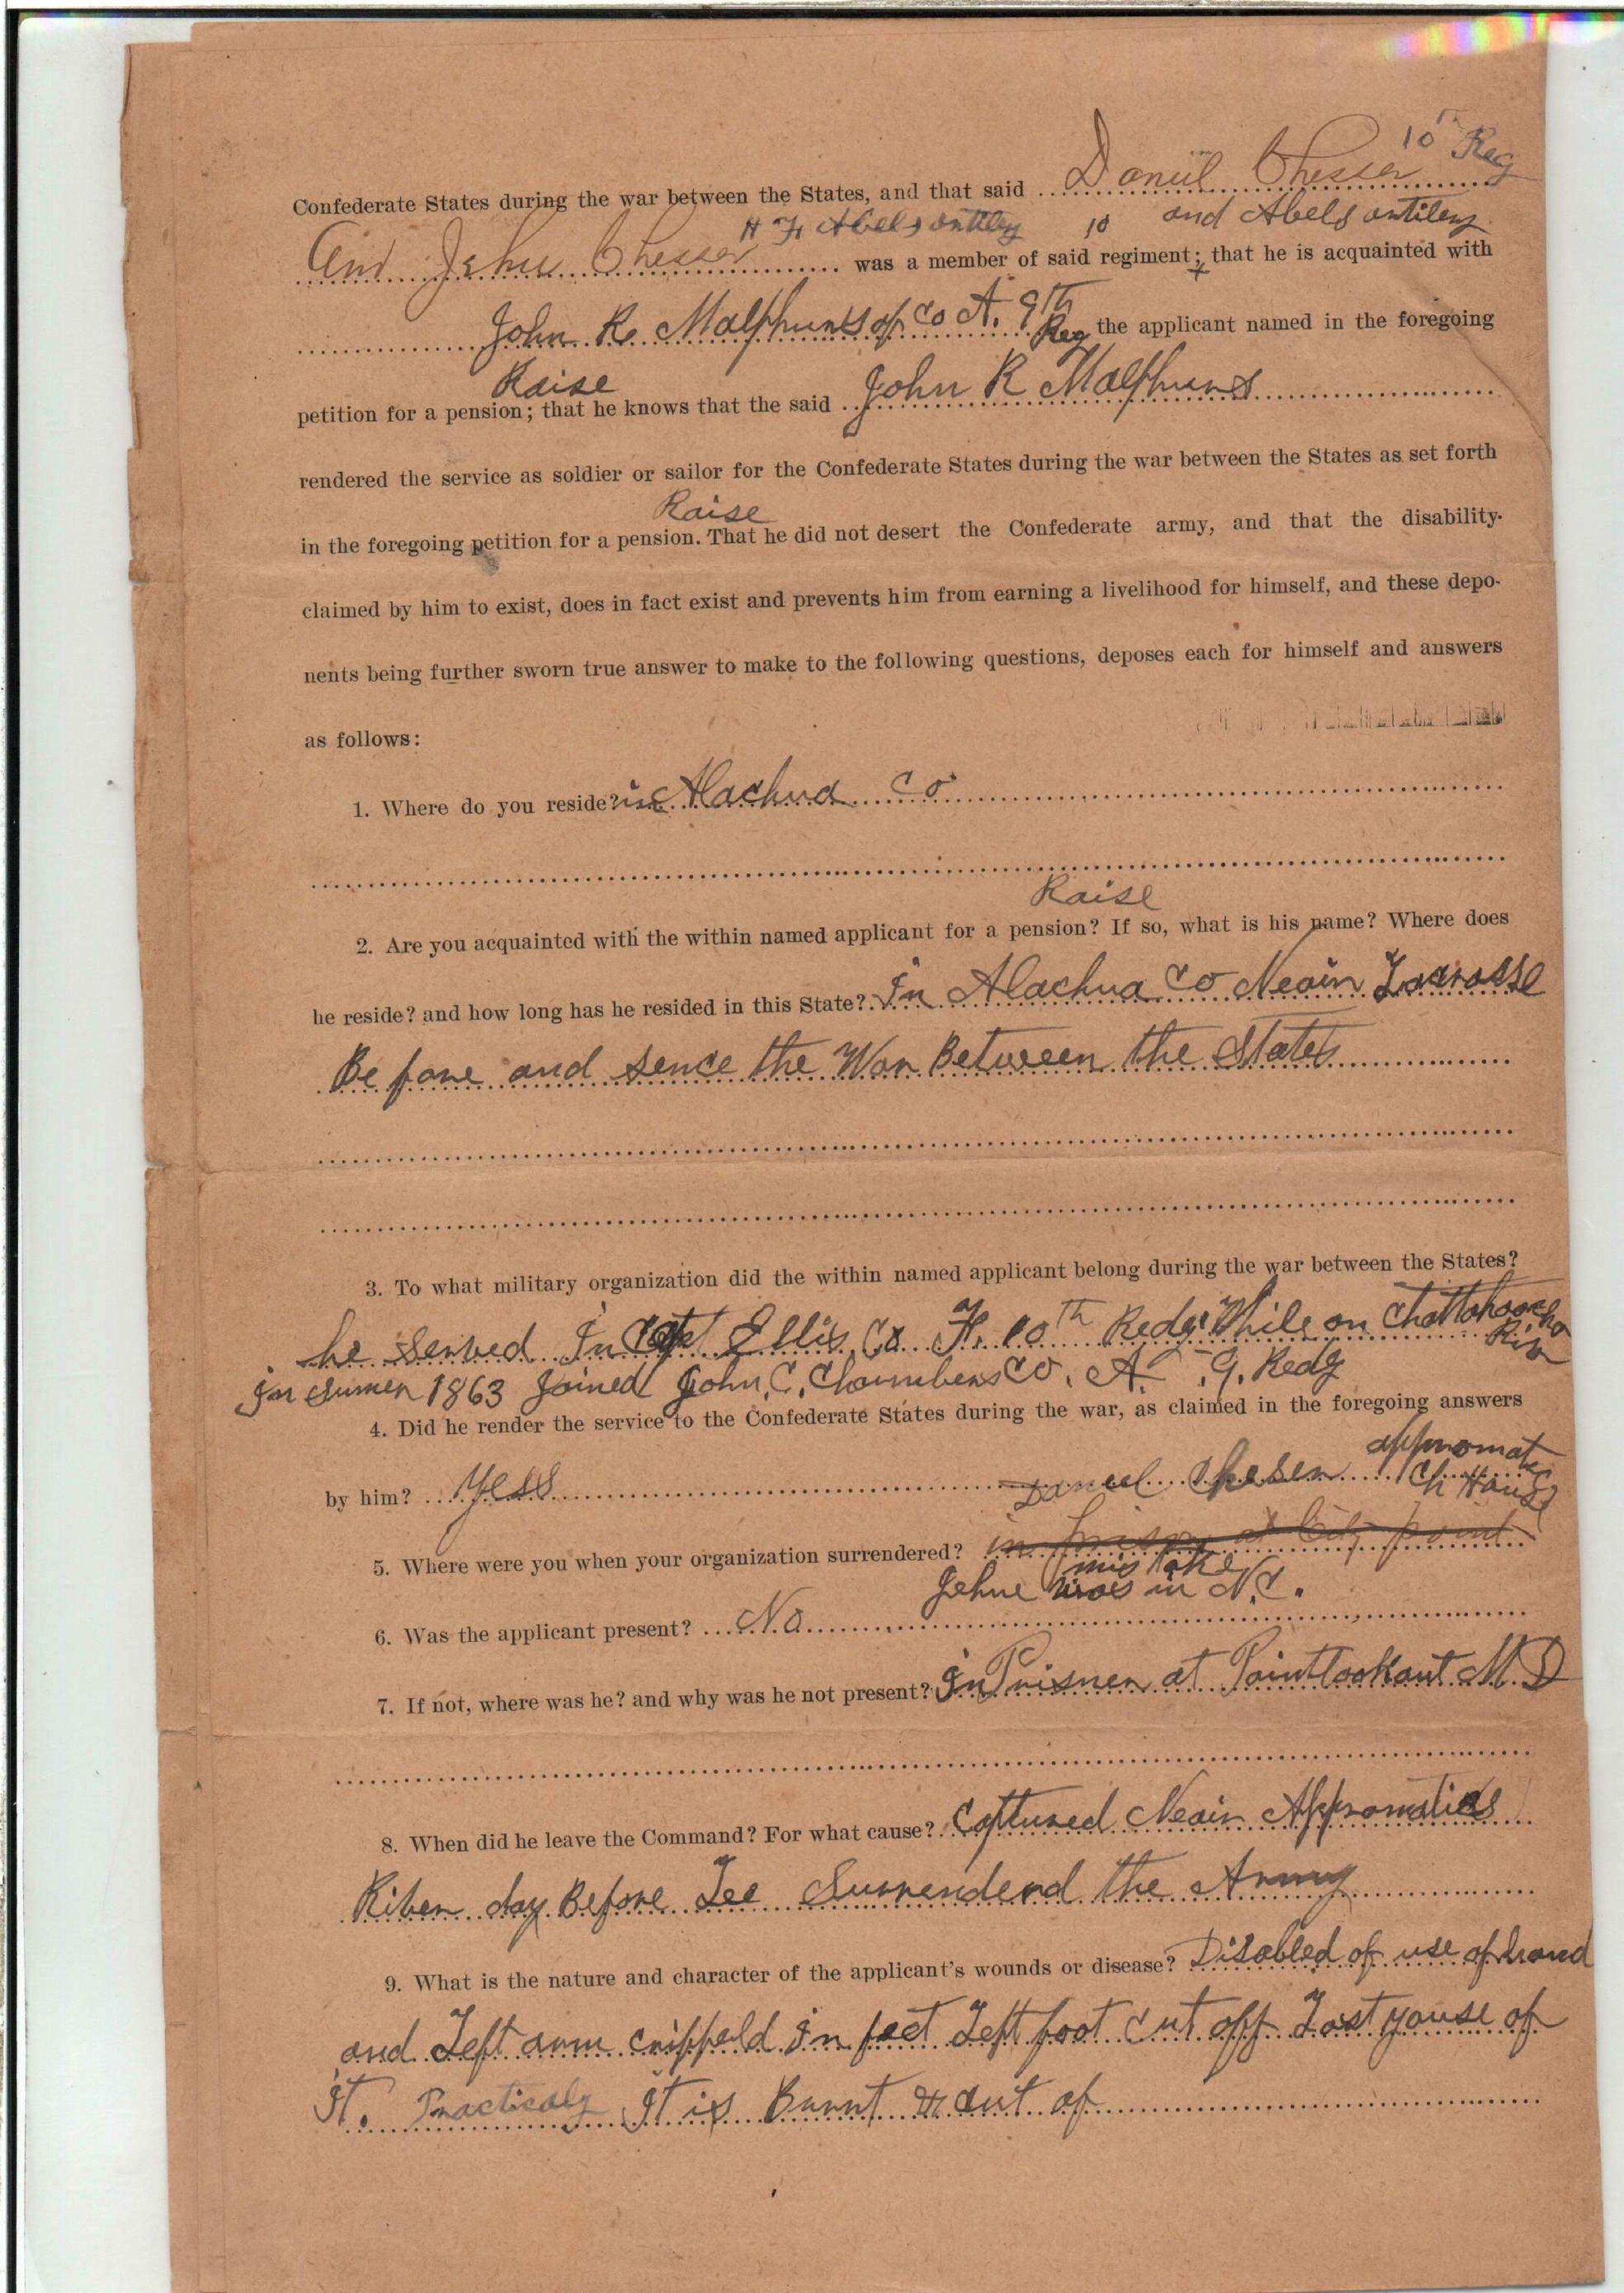 10 Reg
Confederate States during the war between the States, and that said Daniil Chesser
H F Abels ontiley 10 and Abels ontileng
And Jehu Chesser was a member of said regiment; that he is acquainted with
John R. Malphurs of Co A. 9th Reg the applicant named in the foregoing
Raise
petition for a pension; that he knows that the said John R Malphurs
rendered the service as soldier or sailor for the Confederate States during the war between the States as set forth
Raise
in the foregoing petition for a pension. That he did not desert the Confederate army, and that the disability
claimed by him to exist, does in fact exist and prevents him from earning a livelihood for himself, and these depo-
nents being further sworn true answer to make to the following questions, deposes each for himself and answers
as follows:
1. Where do you reside? in Alachua Co
Raise
2. Are you acquainted with the within named applicant for a pension? If so, what is his name? Where does
he reside? and how long has he resided in this State? in Alachua Co Neair Lacrosse
Be fore and sence the War Between the States
3. To what military organization did the within named applicant belong during the war between the States?
he Served In Capt Ellis Co H. 10th Redg While on Chattahoocha
River
in Sumer 1863 Joined John, C, Chambers Co. A. 9. Redg
4. Did he render the service to the Confederate States during the war, as claimed in the foregoing answers
appromatix
by him? Yess Daniel Cheser Ch House
5. Where were you when your organization surrendered? in prison at City point
mistake
Jehue was in N.C.
6. Was the applicant present? No
7. If not, where was he? and why was he not present? In Prisner at Pointlookout M.D
8. When did he leave the Command? For what cause? Captured Neair Appromatics
River day Before Lee Surrenderd the Army
9. What is the nature and character of the applicant's wounds or disease? Disabled of use of hand
and Left arm crippeld in feet Left foot Cut off Lost youse of
It. Practicaly It is Burnt & Cut of